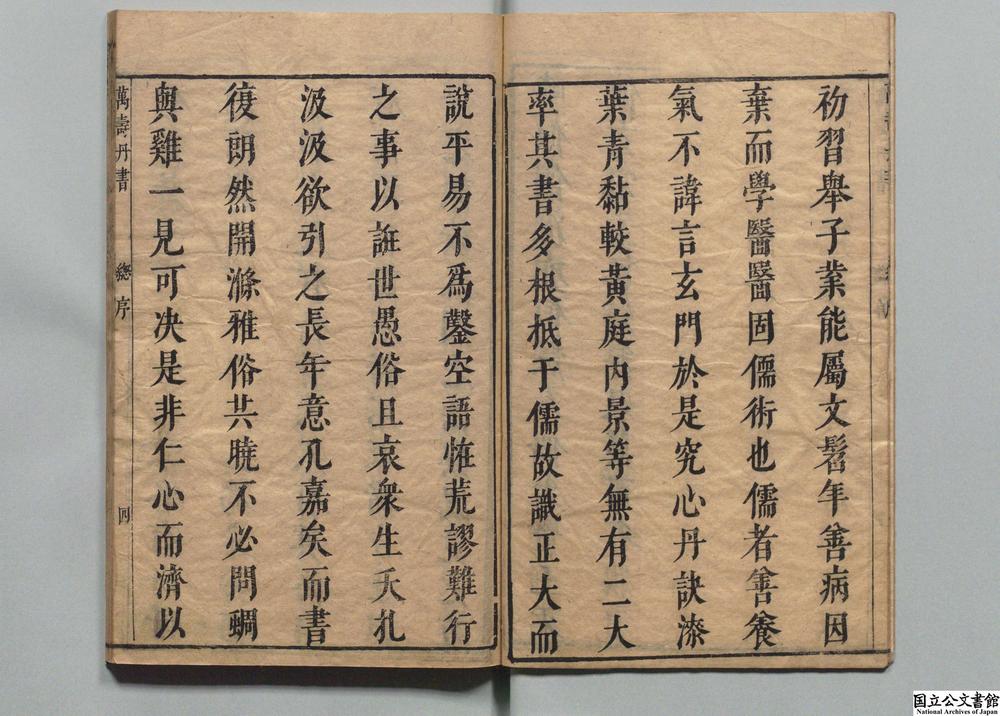 初習舉子業能屬文髫年善病因
棄而學醫醫固儒術也儒者善養
氣不諱言玄門於是究心丹訣漆
葉青黏較黃庭内景等無有二大
率其書多根抵于儒故識正大而
說平易不爲鑿空語恠荒謬難行
之事以誑世愚俗且哀衆生夭札
汲汲欲引之長年意孔嘉矣而書
復朗然開滌雅俗共曉不必問蜩
與雞一見可决是非仁心而濟以
萬壽丹書
總序
四
国立公文書館
National Archives of Japan